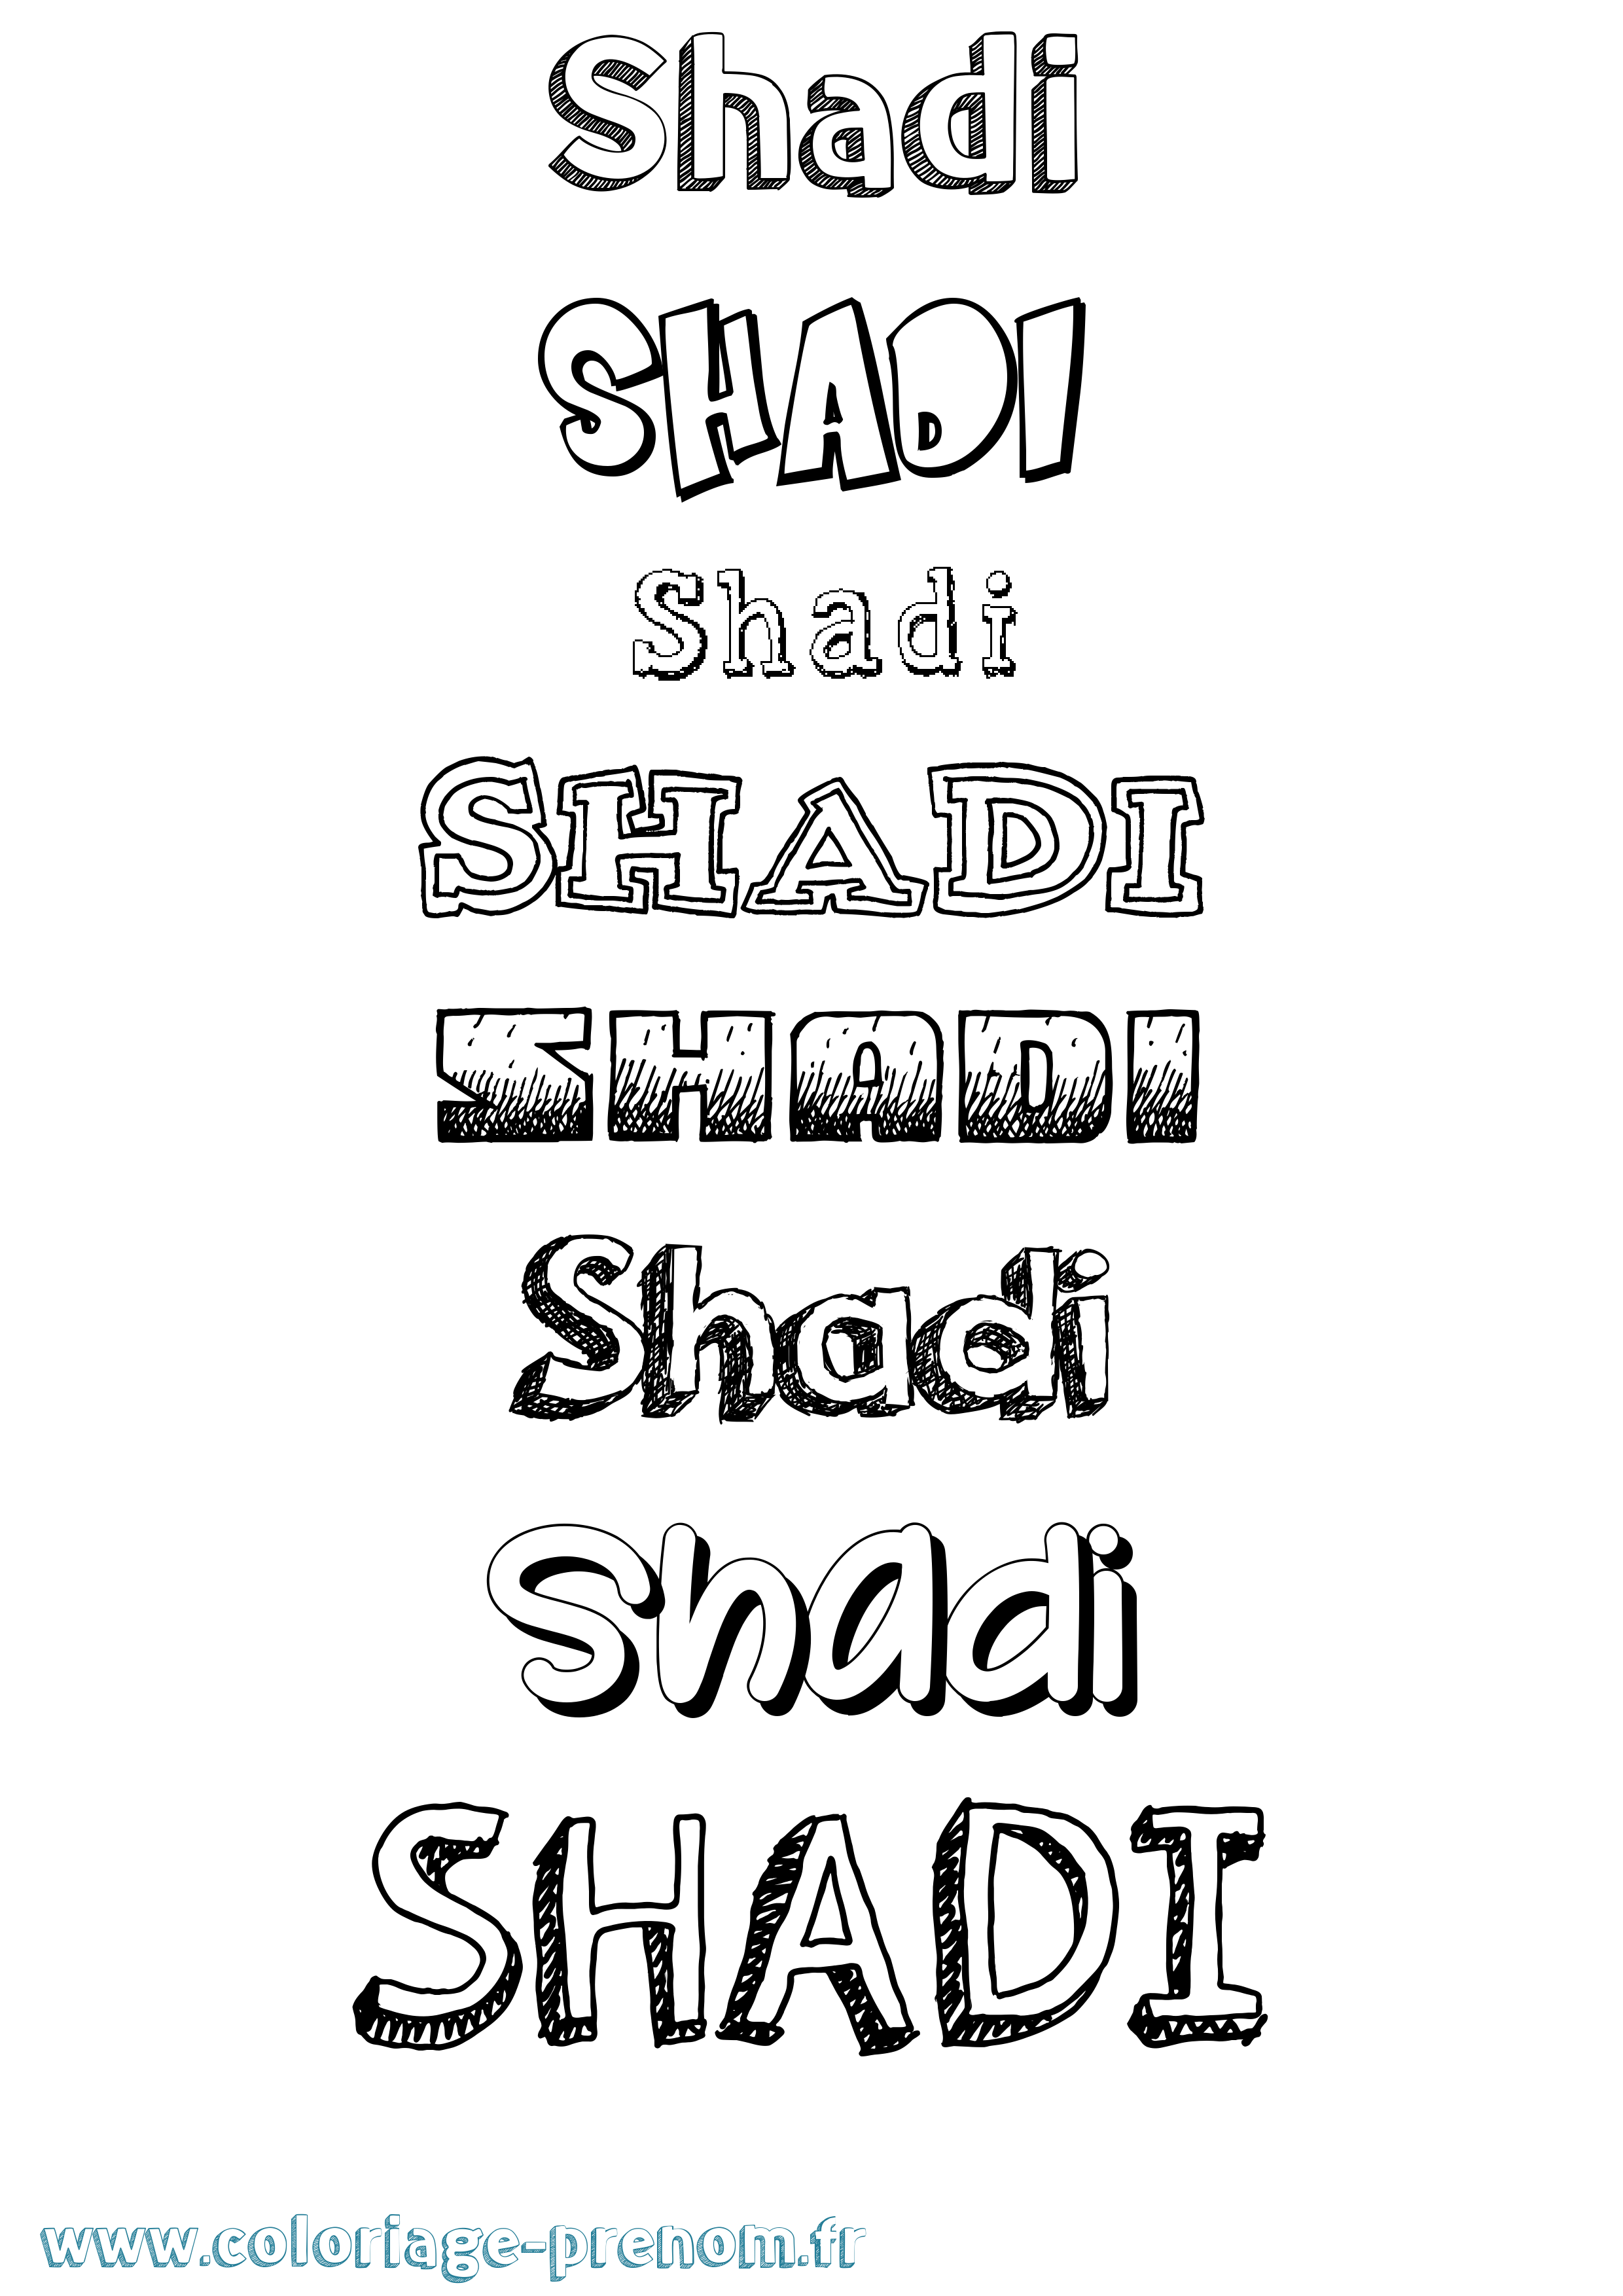 Shadi
SHADI
Shadi
SHADI
SHADI
Shadi
Shadi
SHADI
www.coloriage-prenom.fr